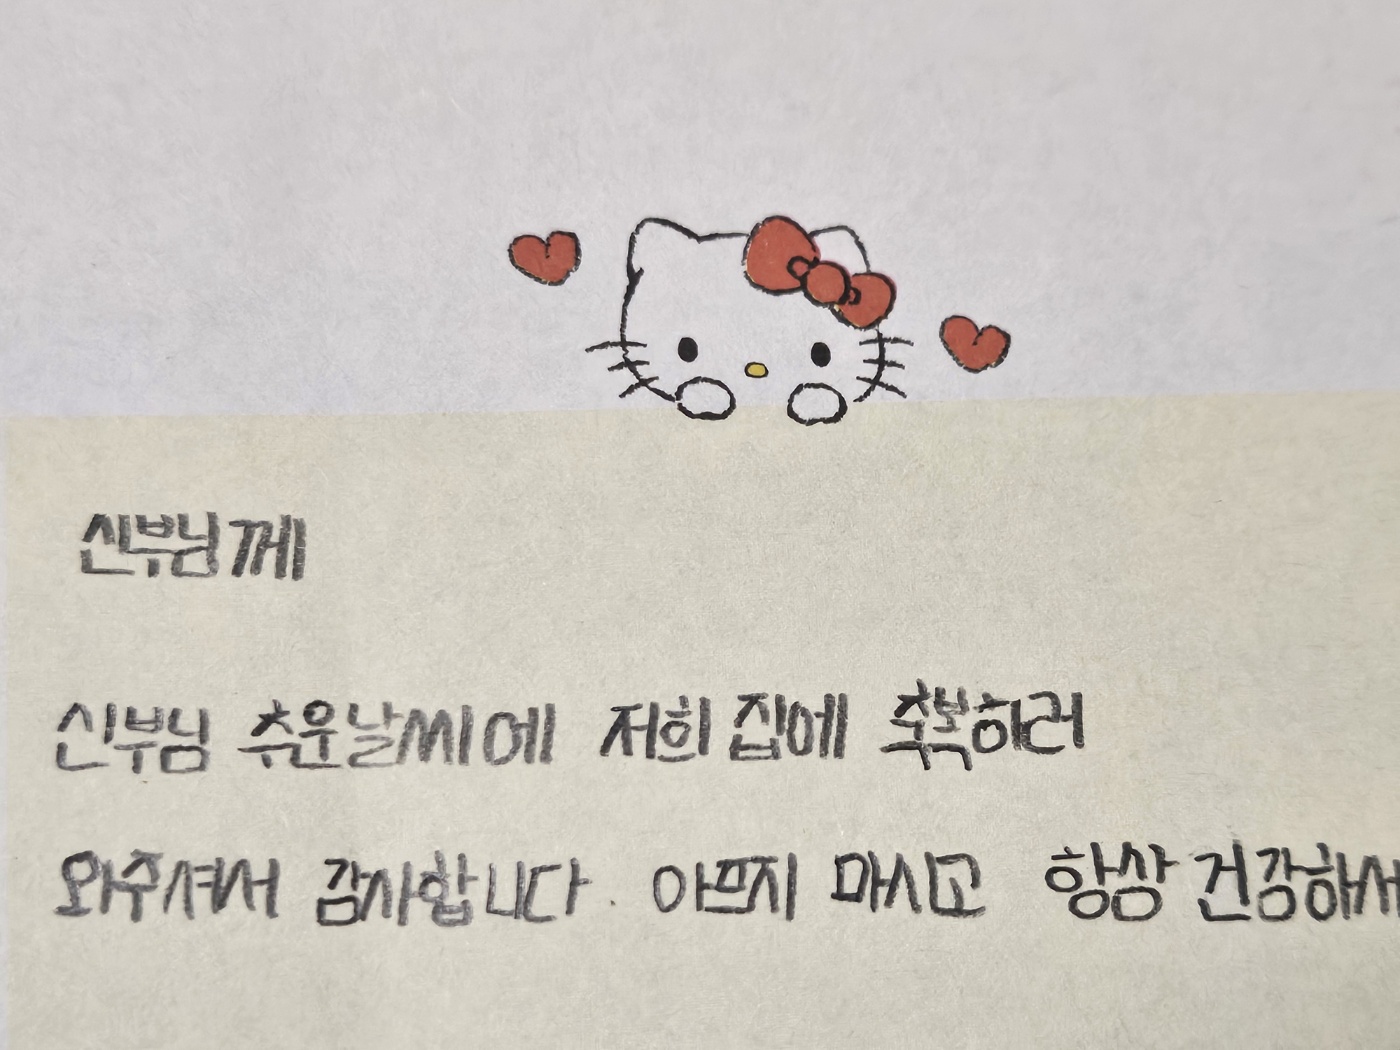 신부님께
신부님 추운날씨에 저희 집에 축복하러
와주셔서 감사합니다. 아프지 마시고 항상 건강하셔